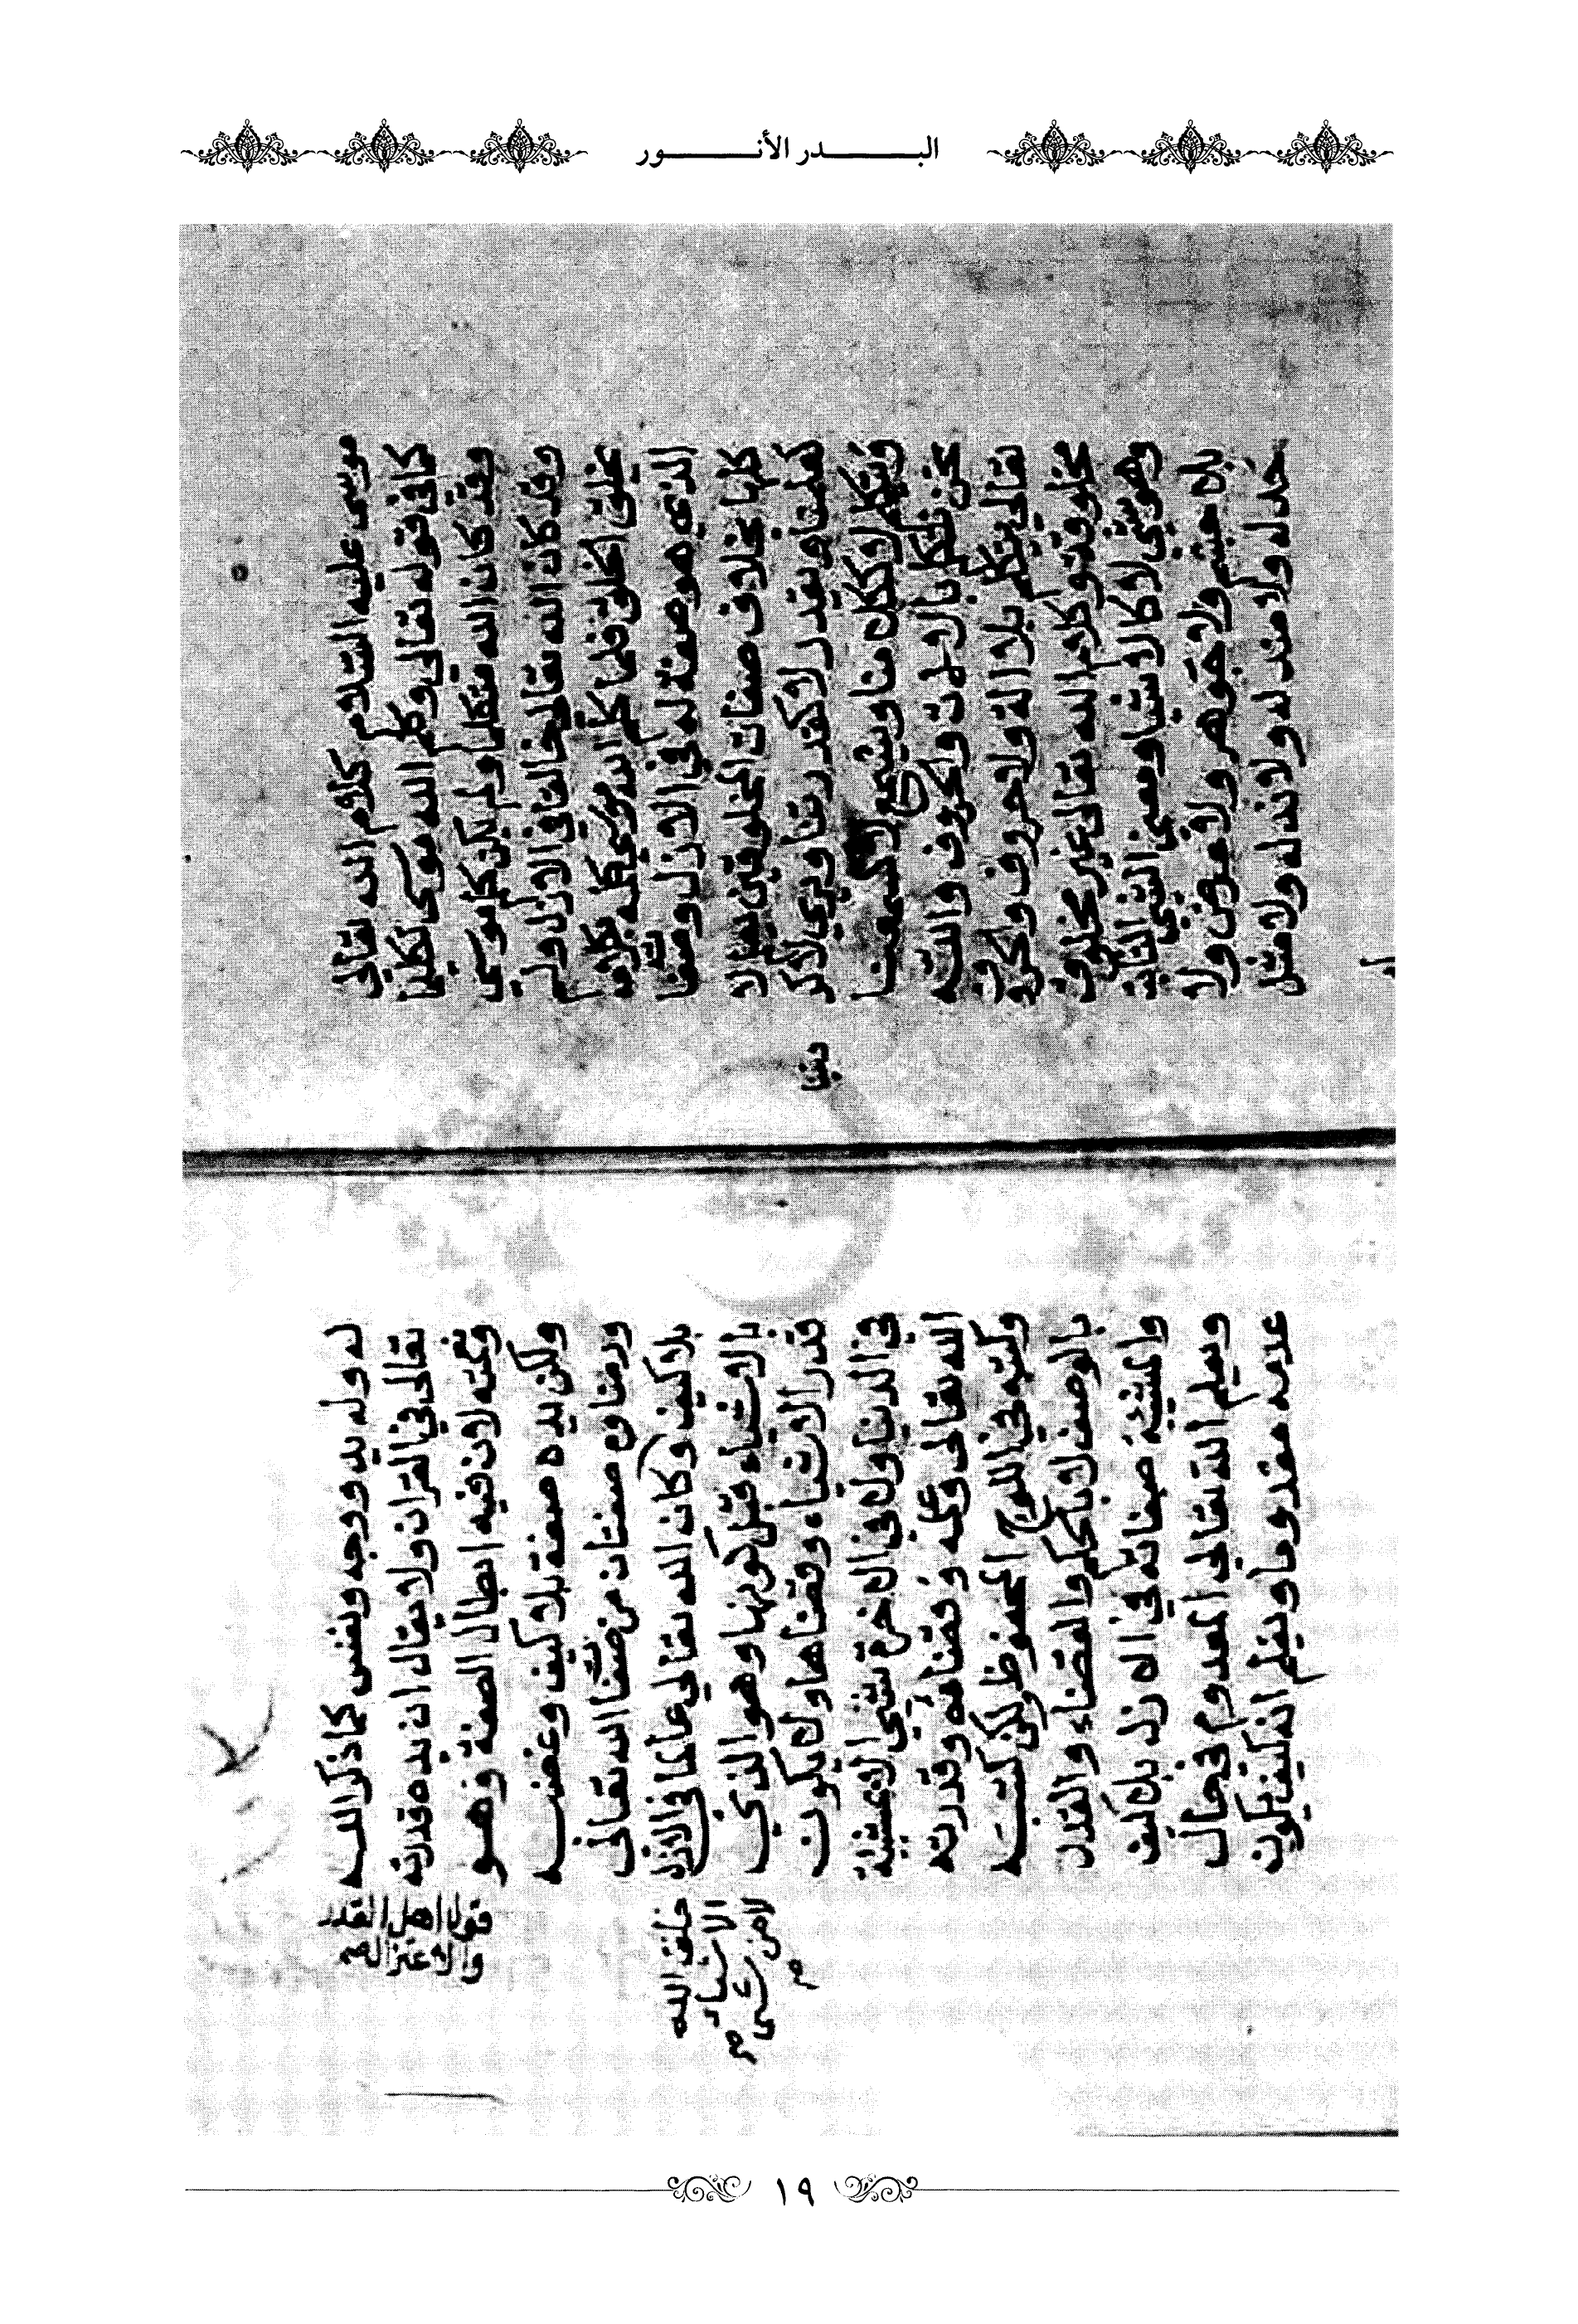 البدر الأنور
موسى عليه السلام كلام الله تعالى
كما في قوله تعالى وكلم الله موسى تكليما
وقد كان الله متكلما ولم يكن كلم موسى
وقد كان الله تعالى خالقا في الازل ولم
يخلق الخلق فلما كلم الله موسى كلمه بكلامه
الذي هو صفة له في الازل وصفاته
كلها بخلاف صفات المخلوقين يعلم لا
كعلمنا ويقدر لا كقدرتنا ويرى لا كر
ويتنا
ويتكلم لا ككلامنا ويسمع لا كسمعنا
نحن نتكلم بالالات والحروف والله
تعالى يتكلم بلا الة ولا حروف والحروف
مخلوقة وكلام الله تعالى غير مخلوق
وهو شئ لا كالاشياء ومعنى الشئ الثابت
بلا جسم ولا جوهر ولا عرض ولا
حد له ولا ضد له ولا ند له ولا مثل
له وله يد ووجه ونفس كما ذكر الله
تعالى في القران ولا يقال ان يده قدرته
ونعمته لان فيه ابطال الصفة وهو
قول اهل القدر
والاعتزال صح
ولكن يده صفة بلا كيف وغضبه
ورضاه صفتان من صفات الله تعالى
بلا كيف وكان الله تعالى عالما في الازل
خلق الله
الاشياء
لا من شئ
بالاشياء قبل كونها وهو الذي
قدر الاشياء وقضاها ولا يكون
في الدنيا ولا في الاخرة شئ الا بمشيئة
الله تعالى وعلمه وقضائه وقدرته
وكتبه في اللوح المحفوظ ولكن كتبه
بالوصف لا بالحكم والقضاء والقدر
والمشيئة صفاته في الازل بلا كيف
ويعلم الله تعالى المعدوم في حال
عدمه معدوما ويعلم انه كيف يكون
١٩